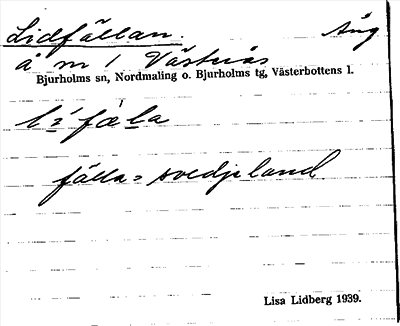 Lidfällan. Äng
å m 1 Västnäs
Bjurholms sn, Nordmaling o. Bjurholms tg, Västerbottens l.
fälla = svedjeland.
Lisa Lidberg 1939.